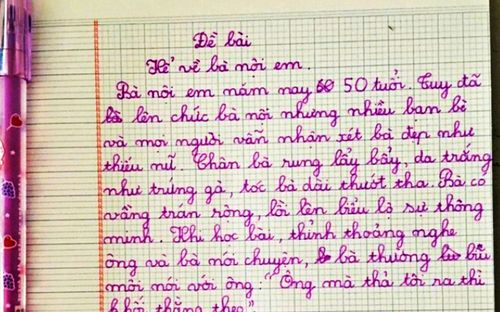 Đề bài
Kể về bà nội em.
Bà nội em năm nay 50 tuổi. Tuy đã
lên chức bà nội nhưng nhiều bạn bè
và mọi người vẫn nhận xét bà đẹp như
thiếu nữ. Chân bà rung lẩy bẩy, da trắng
như trứng gà, tóc bà dài thướt tha. Bà có
vầng trán rộng, lồi lên biểu lộ sự thông
minh. Khi học bài, thỉnh thoảng nghe
ông và bà nói chuyện, bà thường bĩu
môi nói với ông: "Ông mà thả tôi ra thì
khối thằng theo".